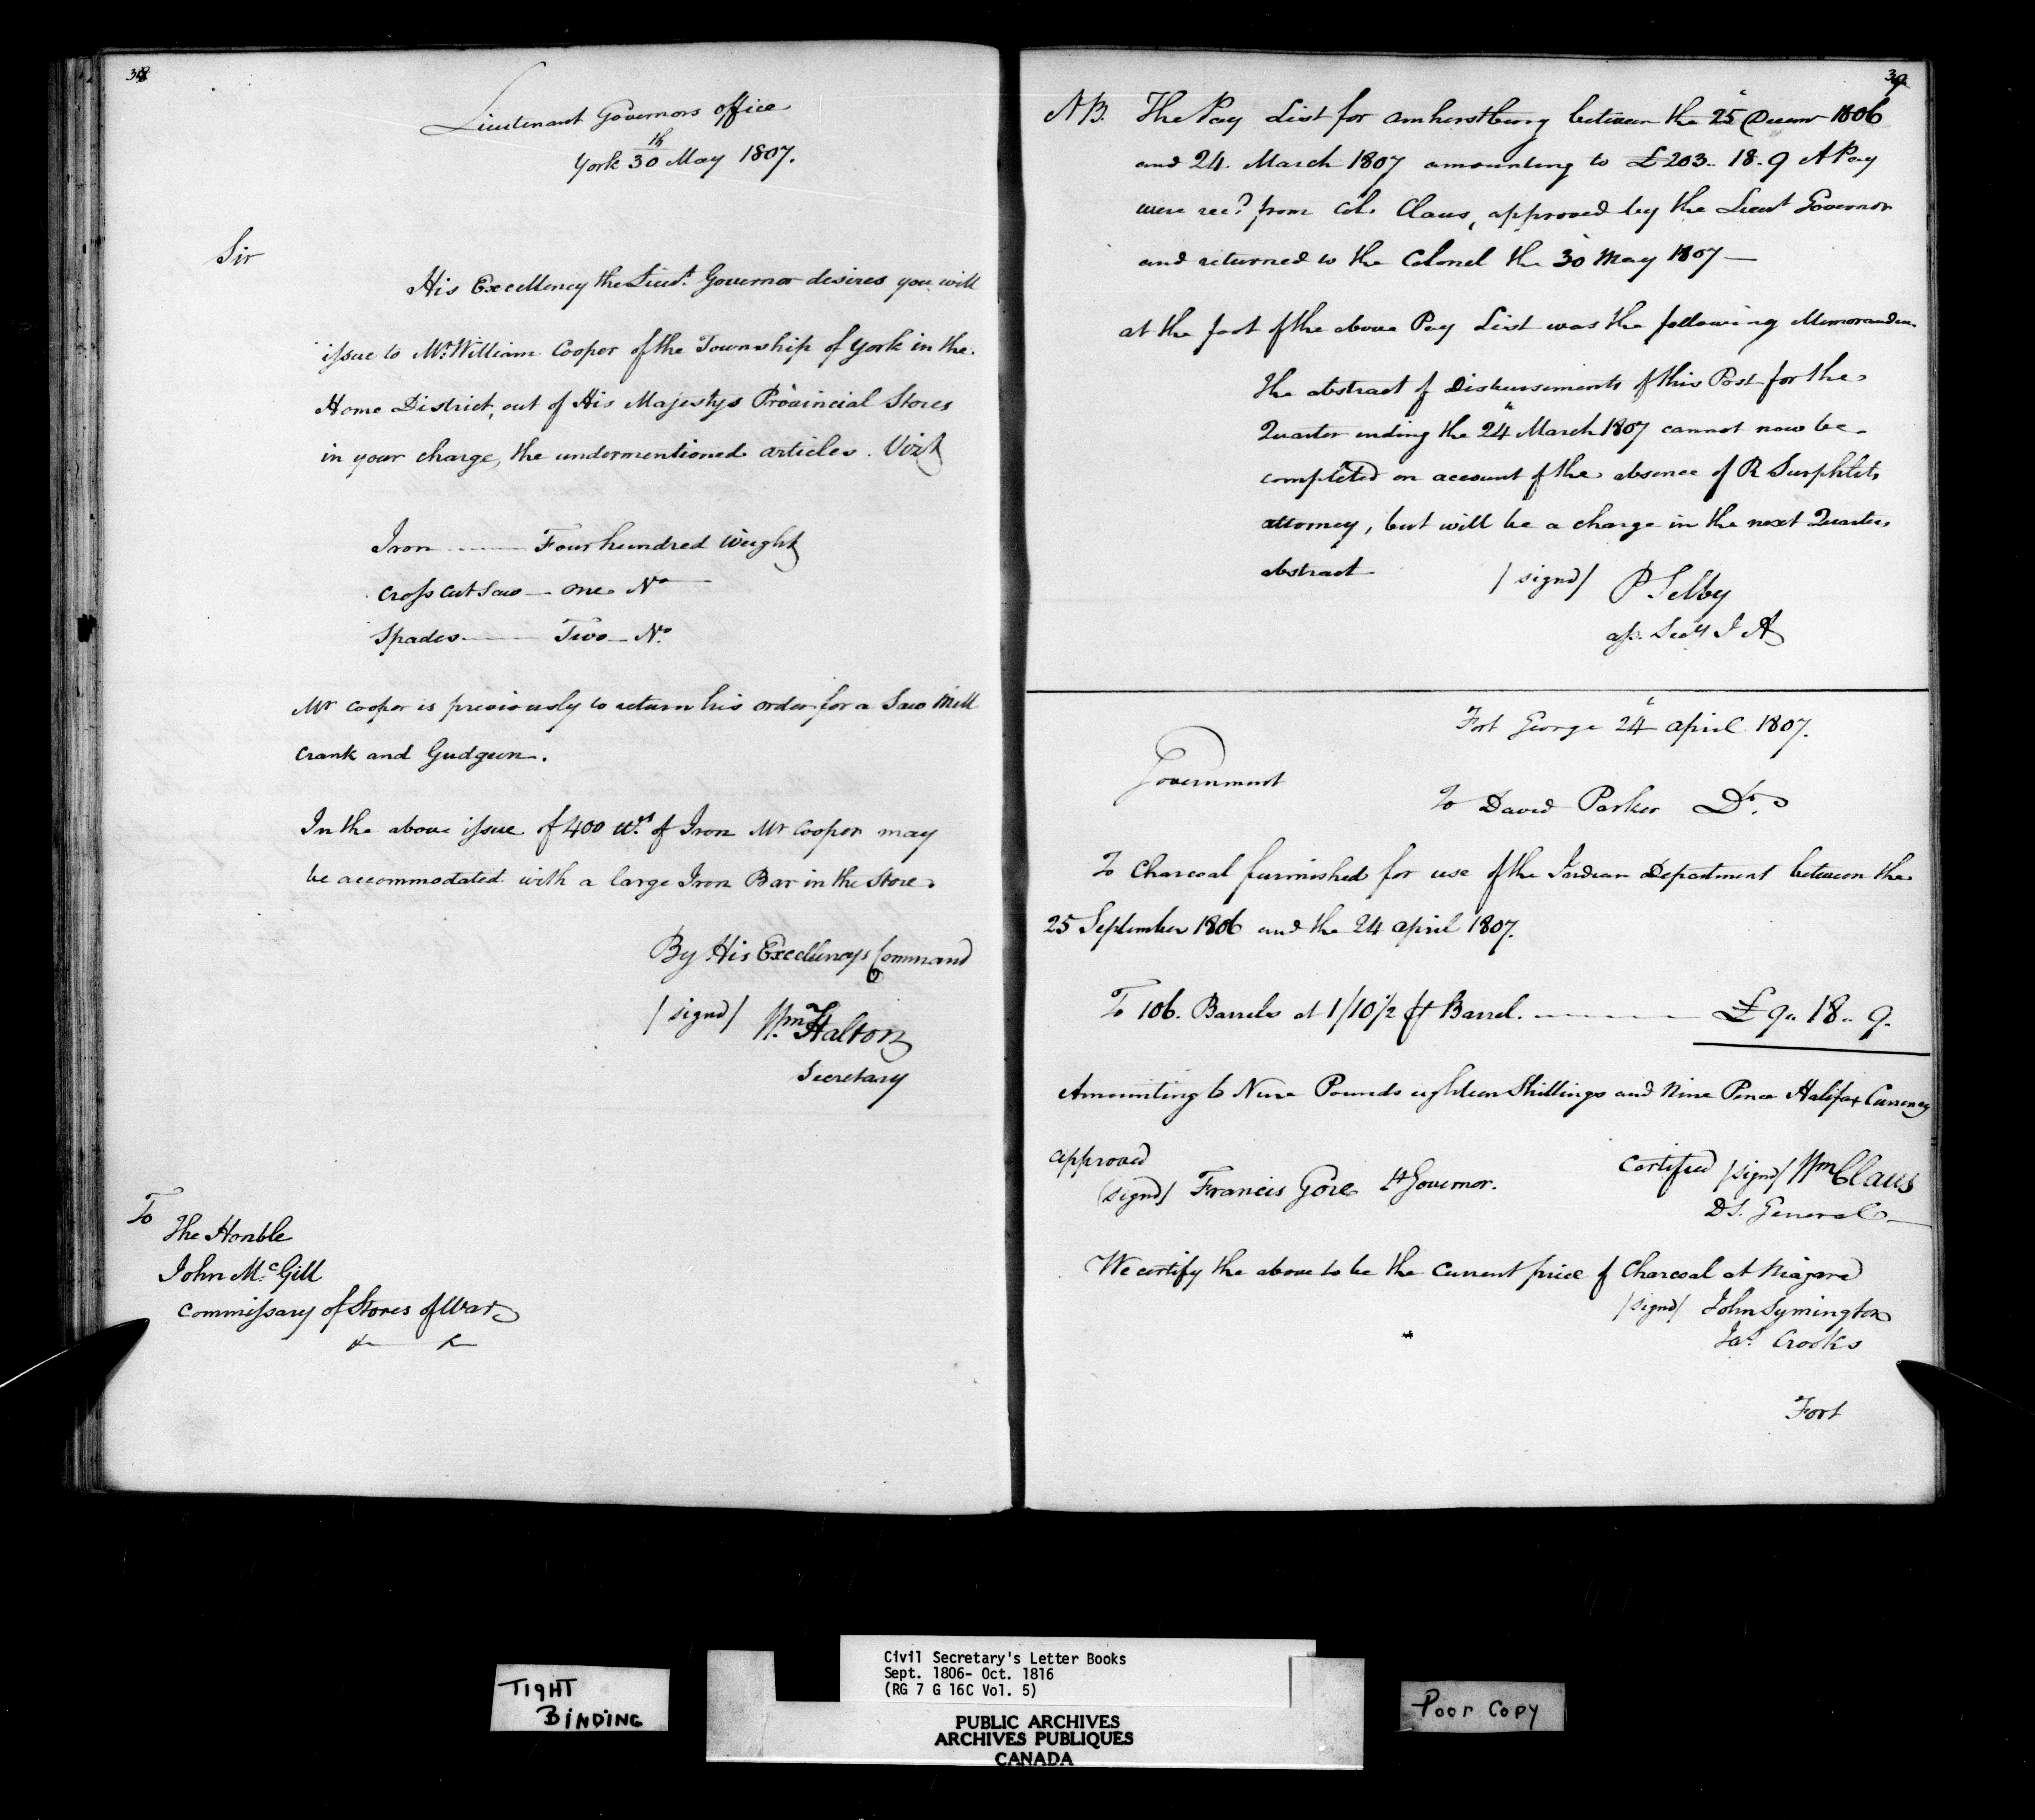 38
Lieutenant Governors office
York 30th May 1807.
Sir
His Excellency the Lieut. Governor desires you will
issue to Mr. William Cooper of the Township of York in the
Home District, out of His Majestys Provincial Stores
in your charge, the undermentioned articles. Vizt
Iron ——— Four hundred Weight
Cross cut Saw — one No
Spades ——— Two — No.
Mr Cooper is previously to return his order for a Saw Mill
Crank and Gudgeon.
In the above issue of 400 wt. of Iron Mr Cooper may
be accommodated with a large Iron Bar in the Store.
By His Excellencys Command
/signd/ Wm Halton
Secretary
To
The Honble
John McGill
Commissary of Stores of War
39
NB. The Pay List for Amherstburg between the 25 Decemr 1806
and 24 March 1807 amounting to £203.. 18.. 9 A Pay
were recd from Col. Claus, approved by the Lieut Governor
and returned to the Colonel the 30 May 1807 —
at the foot of the above Pay List was the following Memorandum
The abstract of Disbursements of this Post for the
Quarter ending the 24th March 1807 cannot now be
completed on account of the absence of R Surphlets
attorney, but will be a charge in the next Quarters
abstract
/signd/ P Selby
ass. Secy I A
Fort George 24 April 1807.
Government
To David Parker Dr.
To Charcoal furnished for use of the Indian Department between the
25 September 1806 and the 24 April 1807.
To 106. Barrels at 1/10½ ⅌ Barrel. ——— £9.. 18.. 9.
Amounting to Nine Pounds eighteen Shillings and Nine Pence Halifax Currency
approved
(signd) Francis Gore Lt Governor.
Certified /signd/ Wm Claus
D S. General —
We certify the above to be the Current price of Charcoal at Niagara
/signd/ John Symington
Jas. Crooks
Fort
TIGHT
BINDING
Civil Secretary's Letter Books
Sept. 1806- Oct. 1816
(RG 7 G 16C Vol. 5)
PUBLIC ARCHIVES
ARCHIVES PUBLIQUES
CANADA
Poor Copy